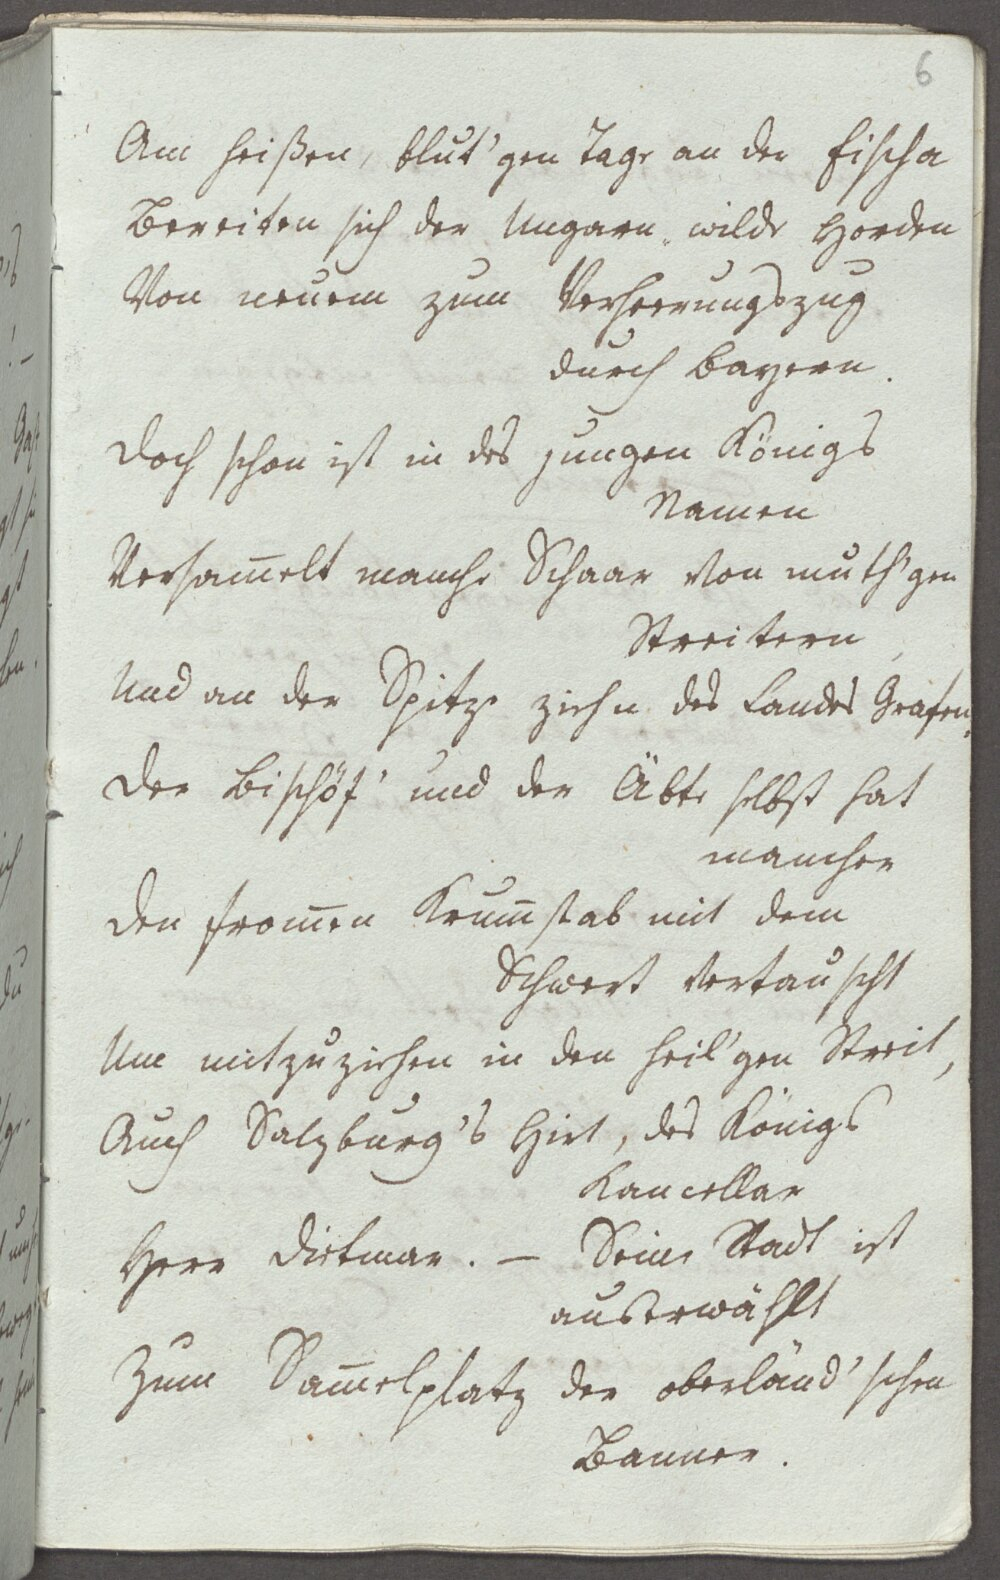 6
Am heißen, blut'gen Tage an der Fischa
Bereiten sich der Ungarn wilde Horden
Von neuem zum Verheerungszug
durch Bayern.
Doch schon ist in des jungen Königs
Namen
Versam̅elt manche Schaar von muth'gen
Streitern,
Und an der Spitze ziehn des Landes Grafen,
Der Bischöf' und der Äbte selbst hat
mancher
Den from̅en Krum̅stab mit dem
Schwert vertauscht
Um mitzuziehen in den heil'gen Streit,
Auch Salzburg's Hirt, des Königs
Kancellar
Herr Dietmar. — Seine Stadt ist
auserwählt
Zum Sam̅elplatz der oberländ'schen
Banner.